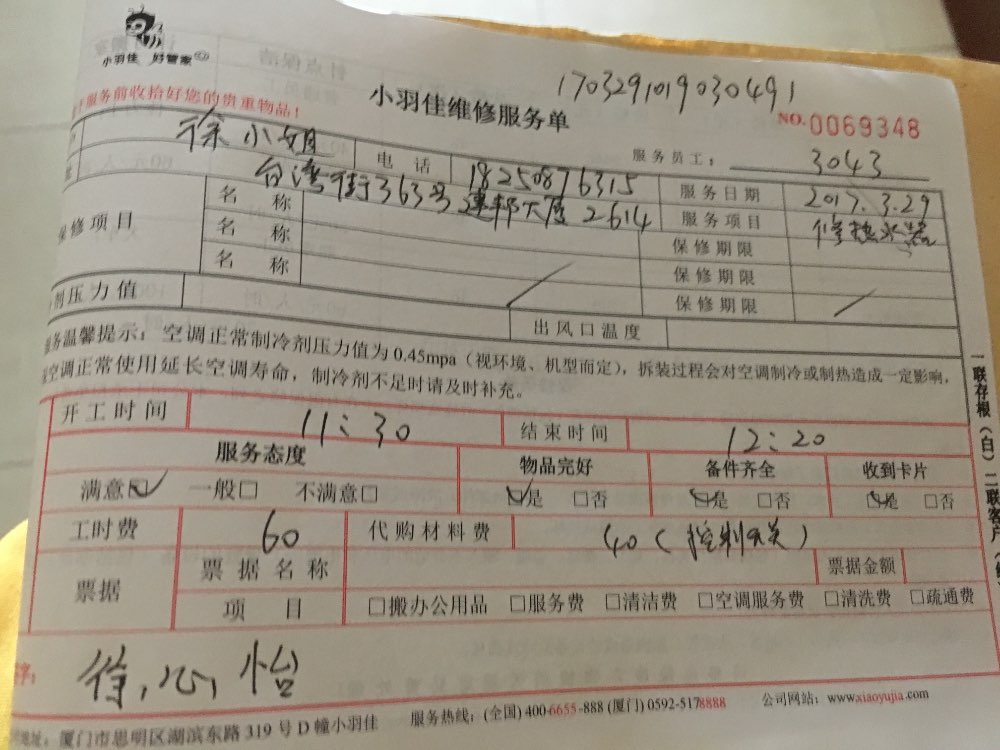 小羽佳 好管家
小羽佳维修服务单
170329101903049​1
NO.0069348
服务前收拾好您的贵重物品！
服务员工： 3043
徐小姐 电话 18250876315 服务日期 2017.3.29
台湾街363号建邦大厦2614 服务项目 修热水器
保修项目 名称 保修期限
名称 保修期限
名称 保修期限
剂压力值 出风口温度
务温馨提示：空调正常制冷剂压力值为0.45mpa（视环境、机型而定），拆装过程会对空调制冷或制热造成一定影响，
空调正常使用延长空调寿命，制冷剂不足时请及时补充。
开工时间 11:30 结束时间 12:20
服务态度 物品完好 备件齐全 收到卡片
满意☑ 一般□ 不满意□ ☑是 □否 ☑是 □否 ☑是 □否
工时费 60 代购材料费 40（控制开关）
票据 票据名称 票据金额
项目 □搬办公用品 □服务费 □清洁费 □空调服务费 □清洗费 □疏通费
字： 徐心怡
厦门市思明区湖滨东路319号D幢小羽佳 服务热线：(全国) 400-6655-888 (厦门) 0592-5178888 公司网站：www.xiaoyujia.com
一联存根（白）二联客户